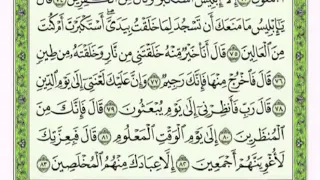 يَٰٓإِبْلِيسُ مَا مَنَعَكَ أَن تَسْجُدَ لِمَا خَلَقْتُ بِيَدَىَّ أَسْتَكْبَرْتَ أَمْ كُنتَ
مِنَ ٱلْعَالِينَ ٧٥ قَالَ أَنَا۠ خَيْرٌ مِّنْهُ خَلَقْتَنِى مِن نَّارٍ وَخَلَقْتَهُۥ مِن طِينٍ
٧٦ قَالَ فَٱخْرُجْ مِنْهَا فَإِنَّكَ رَجِيمٌ ٧٧ وَإِنَّ عَلَيْكَ لَعْنَتِىٓ إِلَىٰ يَوْمِ ٱلدِّينِ
٧٨ قَالَ رَبِّ فَأَنظِرْنِىٓ إِلَىٰ يَوْمِ يُبْعَثُونَ ٧٩ قَالَ فَإِنَّكَ مِنَ
ٱلْمُنظَرِينَ ٨٠ إِلَىٰ يَوْمِ ٱلْوَقْتِ ٱلْمَعْلُومِ ٨١ قَالَ فَبِعِزَّتِكَ
لَأُغْوِيَنَّهُمْ أَجْمَعِينَ ٨٢ إِلَّا عِبَادَكَ مِنْهُمُ ٱلْمُخْلَصِينَ ٨٣